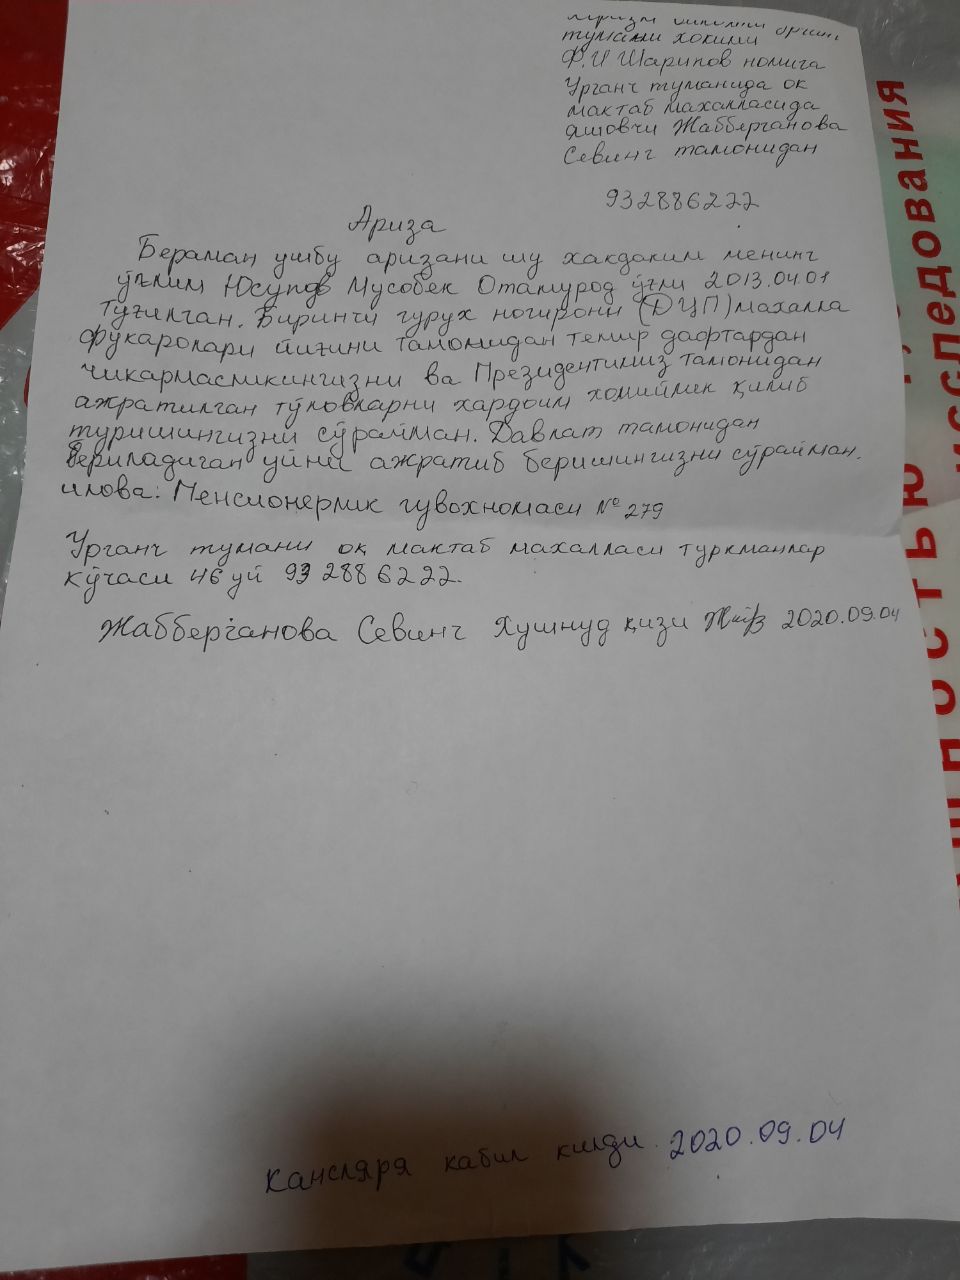 тумани хокими
Ф.И Шарипов номига
Урганч туманида ок
мактаб махалласида
яшовчи Жабберганова
Севинч тамонидан
932886222
Ариза
Бераман ушбу аризани шу хакдаким менинг
ўғлим Юсупов Мусобек Отамурод ўғли 2013.04.01
туғилган. Биринчи гурух ногирони (ДЦП) махалла
фукаролари йиғини тамонидан темир дафтардан
чикармасликингизни ва Президентимиз тамонидан
ажратилган тўловларни хардоим хомийлик қилиб
туришингизни сўрайман. Давлат тамонидан
бериладиган уйни ажратиб беришингизни сўрайман.
илова: Пенсионерлик гувохномаси № 279
Урганч тумани оқ мактаб махалласи туркманлар
кўчаси 46 уй 93 288 62 22.
Жабберганова Севинч Хушнуд қизи 2020.09.04
Кансляря кабил килди 2020.09.04
исследования
ностью